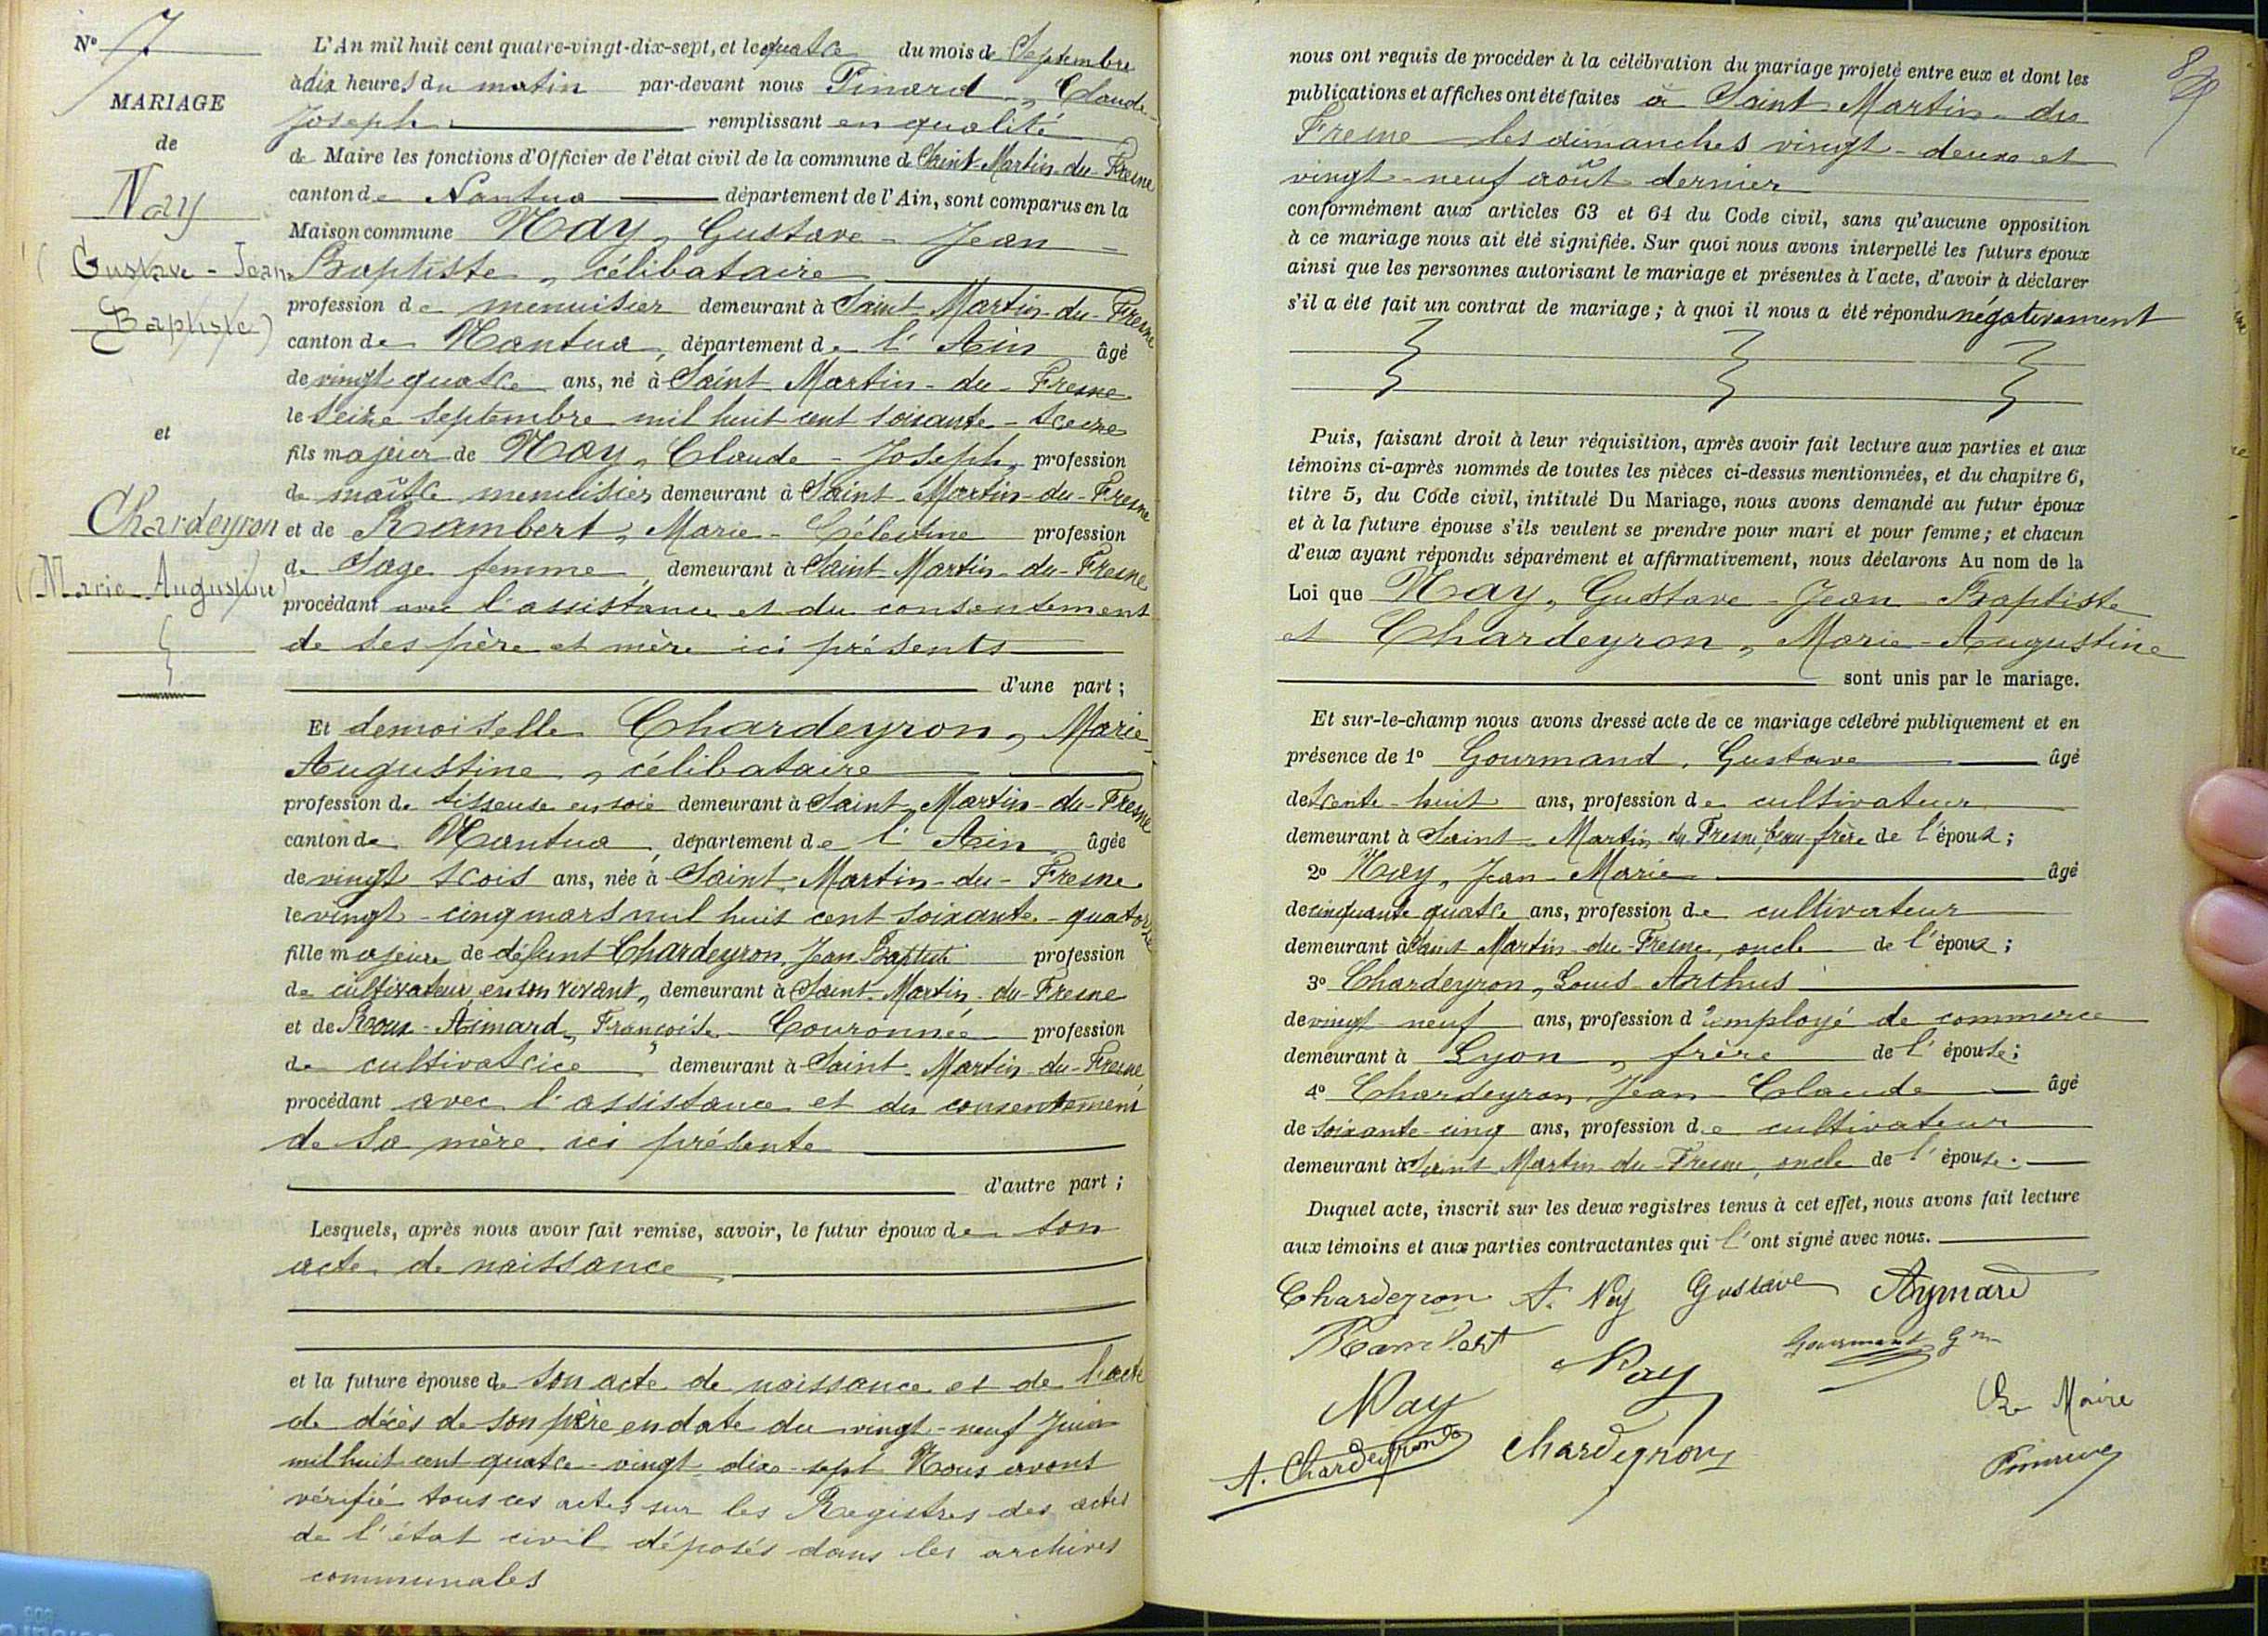 Nº 7
MARIAGE
de
Nay
(Gustave - Jean
Baptiste)
et
Chardeyron
(Marie Augustine)
L'An mil huit cent quatre-vingt-dix-sept, et le quatre du mois de Septembre
à dix heures du matin par-devant nous Pinard, Claude-
Joseph remplissant en qualité
de Maire les fonctions d'Officier de l'état civil de la commune de Saint-Martin-du-Fresne
canton de Nantua département de l'Ain, sont comparus en la
Maison commune Nay, Gustave - Jean -
Baptiste, célibataire
profession de menuisier demeurant à Saint-Martin-du-Fresne
canton de Nantua, département de l'Ain âgé
de vingt quatre ans, né à Saint Martin-du-Fresne
le seize septembre mil huit cent soixante-treize
fils majeur de Nay, Claude-Joseph, profession
de maître menuisier demeurant à Saint-Martin-du-Fresne
et de Rambert, Marie-Célestine profession
de Sage femme, demeurant à Saint-Martin-du-Fresne
procédant avec l'assistance et du consentement
de ses père et mère ici présents
d'une part;
Et demoiselle Chardeyron, Marie-
Augustine, célibataire
profession de tisseuse en soie demeurant à Saint-Martin-du-Fresne
canton de Nantua, département de l'Ain âgée
de vingt trois ans, née à Saint-Martin-du-Fresne
le vingt-cinq mars mil huit cent soixante-quatorze
fille majeure de défunt Chardeyron, Jean Baptiste profession
de cultivateur en son vivant, demeurant à Saint-Martin-du-Fresne
et de Roux-Aimard, Françoise Couronnée profession
de cultivatrice, demeurant à Saint-Martin-du-Fresne
procédant avec l'assistance et du consentement
de sa mère ici présente
d'autre part;
Lesquels, après nous avoir fait remise, savoir, le futur époux de son
acte de naissance
et la future épouse de son acte de naissance et de l'acte
de décès de son père en date du vingt-neuf Juin
mil huit cent quatre-vingt dix-sept Nous avons
vérifié tous ces actes sur les Registres des actes
de l'état civil déposés dans les archives
communales
nous ont requis de procéder à la célébration du mariage projeté entre eux et dont les
publications et affiches ont été faites à Saint Martin-du
Fresne les dimanches vingt-deux et
vingt-neuf août dernier
conformément aux articles 63 et 64 du Code civil, sans qu'aucune opposition
à ce mariage nous ait été signifiée. Sur quoi nous avons interpellé les futurs époux
ainsi que les personnes autorisant le mariage et présentes à l'acte, d'avoir à déclarer
s'il a été fait un contrat de mariage; à quoi il nous a été répondu négativement
Puis, faisant droit à leur réquisition, après avoir fait lecture aux parties et aux
témoins ci-après nommés de toutes les pièces ci-dessus mentionnées, et du chapitre 6,
titre 5, du Code civil, intitulé Du Mariage, nous avons demandé au futur époux
et à la future épouse s'ils veulent se prendre pour mari et pour femme; et chacun
d'eux ayant répondu séparément et affirmativement, nous déclarons Au nom de la
Loi que Nay, Gustave-Jean-Baptiste
et Chardeyron, Marie-Augustine
sont unis par le mariage.
Et sur-le-champ nous avons dressé acte de ce mariage célébré publiquement et en
présence de 1º Gourmand, Gustave âgé
de trente-huit ans, profession de cultivateur
demeurant à Saint-Martin-du-Fresne, beau-frère de l'époux;
2º Nay, Jean-Marie âgé
de cinquante quatre ans, profession de cultivateur
demeurant à Saint Martin-du-Fresne, oncle de l'époux;
3º Chardeyron, Louis Arthus
de vingt-neuf ans, profession d'employé de commerce
demeurant à Lyon, frère de l'épouse;
4º Chardeyron, Jean Claude âgé
de soixante-cinq ans, profession de cultivateur
demeurant à Saint Martin-du-Fresne, oncle de l'épouse.
Duquel acte, inscrit sur les deux registres tenus à cet effet, nous avons fait lecture
aux témoins et aux parties contractantes qui l'ont signé avec nous.
Chardeyron A. Nay Gustave Aymard
Rambert Nay Gourmand
Nay Le Maire
A. Chardeyron Chardeyron